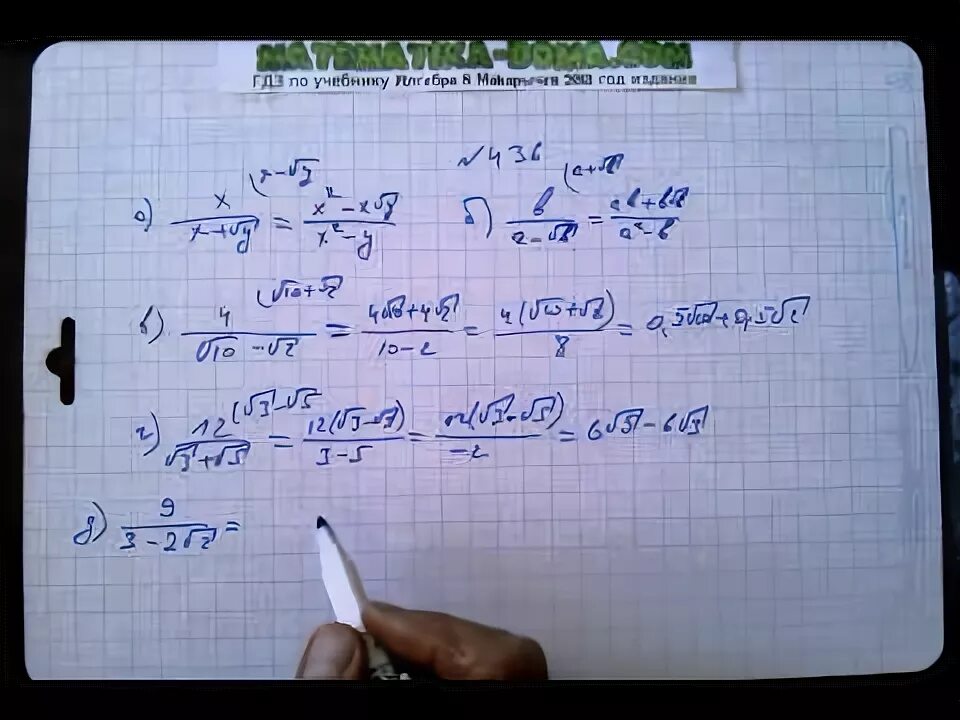 MATEMATIKA-DOMA.COM
ГДЗ по учебнику Алгебра 8 Макарычев 2013 год издания
№436
а) x/(x+√y) (x-√y = (x²-x√y)/(x²-y)
б) b/(a-√b) (a+√b = (ab+b√b)/(a²-b)
в) 4/(√10-√2) (√10+√2 = (4√10+4√2)/(10-2) = 4(√10+√2)/8 = 0,5√10+0,5√2
г) 12/(√3+√5) (√3-√5 = 12(√3-√5)/(3-5) = 12(√3-√5)/(-2) = 6√5-6√3
д) 9/(3-2√2) =